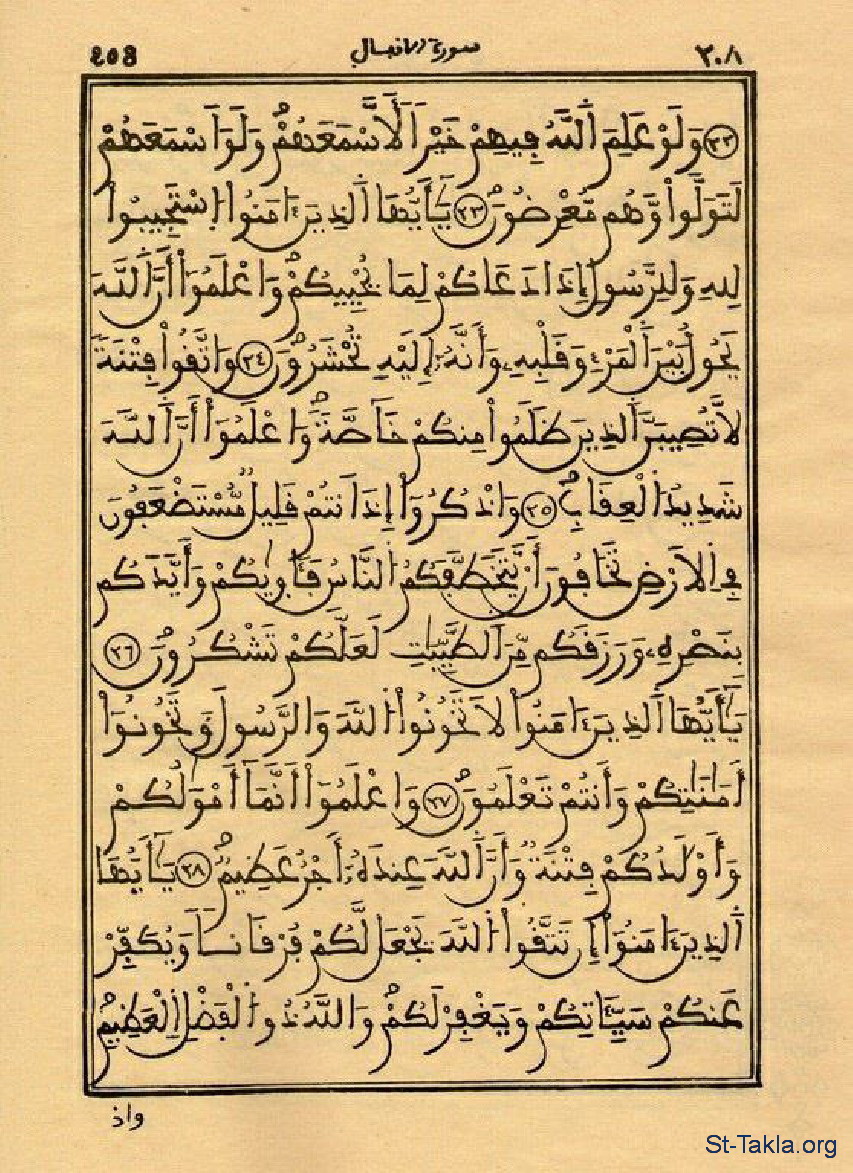 ٢٠٨ سورة الانفال ٤٥٤
٢٢ وَلَوْ عَلِمَ اَ۬للَّهُ فِيهِمْ خَيْراٗ لَّأَسْمَعَهُمْ وَلَوَ اَسْمَعَهُمْ
لَتَوَلَّواْ وَّهُم مُّعْرِضُونَ ٢٣ يَٰٓأَيُّهَا اَ۬لذِينَ ءَامَنُواْ اُ۪سْتَجِيبُواْ
لِلهِ وَلِلرَّسُولِ إِذَا دَعَاكُمْ لِمَا يُحْيِيكُمْ وَاعْلَمُوٓاْ أَنَّ اَ۬للَّهَ
يَحُولُ بَيْنَ اَ۬لْمَرْءِ وَقَلْبِهِۦ وَأَنَّهُۥٓ إِلَيْهِ تُحْشَرُونَ ٢٤ وَاتَّقُواْ فِتْنَةٗ
لَّا تُصِيبَنَّ اَ۬لذِينَ ظَلَمُواْ مِنكُمْ خَآصَّةٗ وَاعْلَمُوٓاْ أَنَّ اَ۬للَّهَ
شَدِيدُ اُ۬لْعِقَابِ ٢٥ وَاذْكُرُوٓاْ إِذَ اَنتُمْ قَلِيلٞ مُّسْتَضْعَفُونَ
فِے اِ۬لَارْضِ تَخَافُونَ أَنْ يَّتَخَطَّفَكُمُ اُ۬لنَّاسُ فَـَٔاو۪ىٰكُمْ وَأَيَّدَكُم
بِنَصْرِهِۦ وَرَزَقَكُم مِّنَ اَ۬لطَّيِّبَٰتِ لَعَلَّكُمْ تَشْكُرُونَ ٢٦
يَٰٓأَيُّهَا اَ۬لذِينَ ءَامَنُواْ لَا تَخُونُواْ اُ۬للَّهَ وَالرَّسُولَ وَتَخُونُوٓاْ
أَمَٰنَٰتِكُمْ وَأَنتُمْ تَعْلَمُونَ ٢٧ وَاعْلَمُوٓاْ أَنَّمَآ أَمْوَٰلُكُمْ
وَأَوْلَٰدُكُمْ فِتْنَةٞ وَأَنَّ اَ۬للَّهَ عِندَهُۥٓ أَجْرٌ عَظِيمٞ ٢٨ يَٰٓأَيُّهَا
اَ۬لذِينَ ءَامَنُوٓاْ إِن تَتَّقُواْ اُ۬للَّهَ يَجْعَل لَّكُمْ فُرْقَاناٗ وَيُكَفِّرْ
عَنكُمْ سَيِّـَٔاتِكُمْ وَيَغْفِرْ لَكُمْ وَاللَّهُ ذُو اُ۬لْفَضْلِ اِ۬لْعَظِيمِ
واذ
St-Takla.org